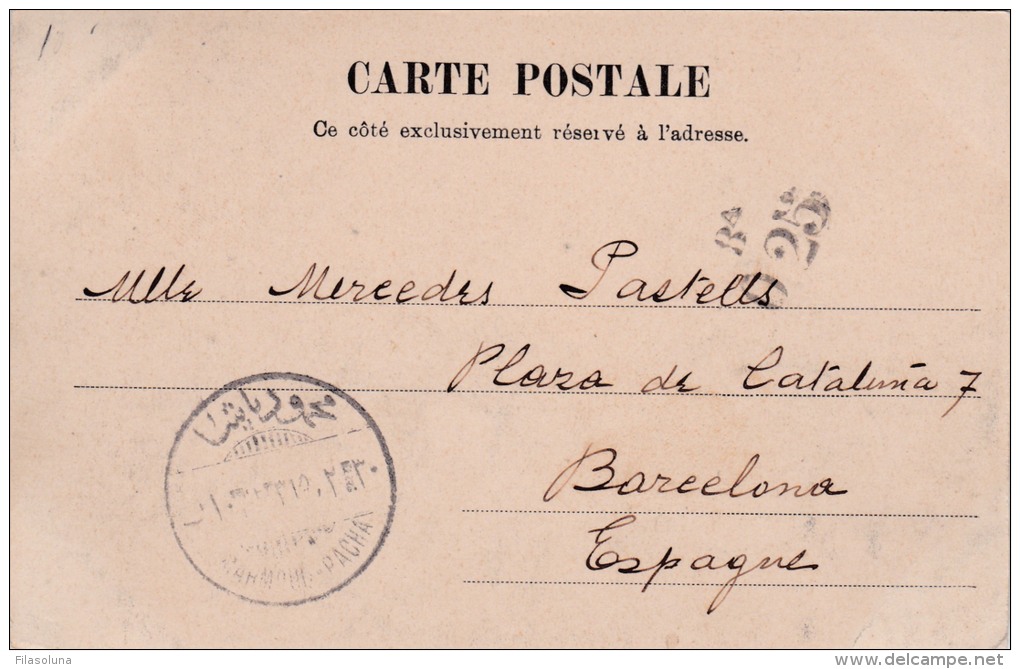 CARTE POSTALE
Ce côté exclusivement réservé à l'adresse.
25
Mlle Mercedes Pastells
Plaza de Cataluña 7
Barcelona
Espagne
محمود باشا
PACHA
Filasoluna
delcampe.net